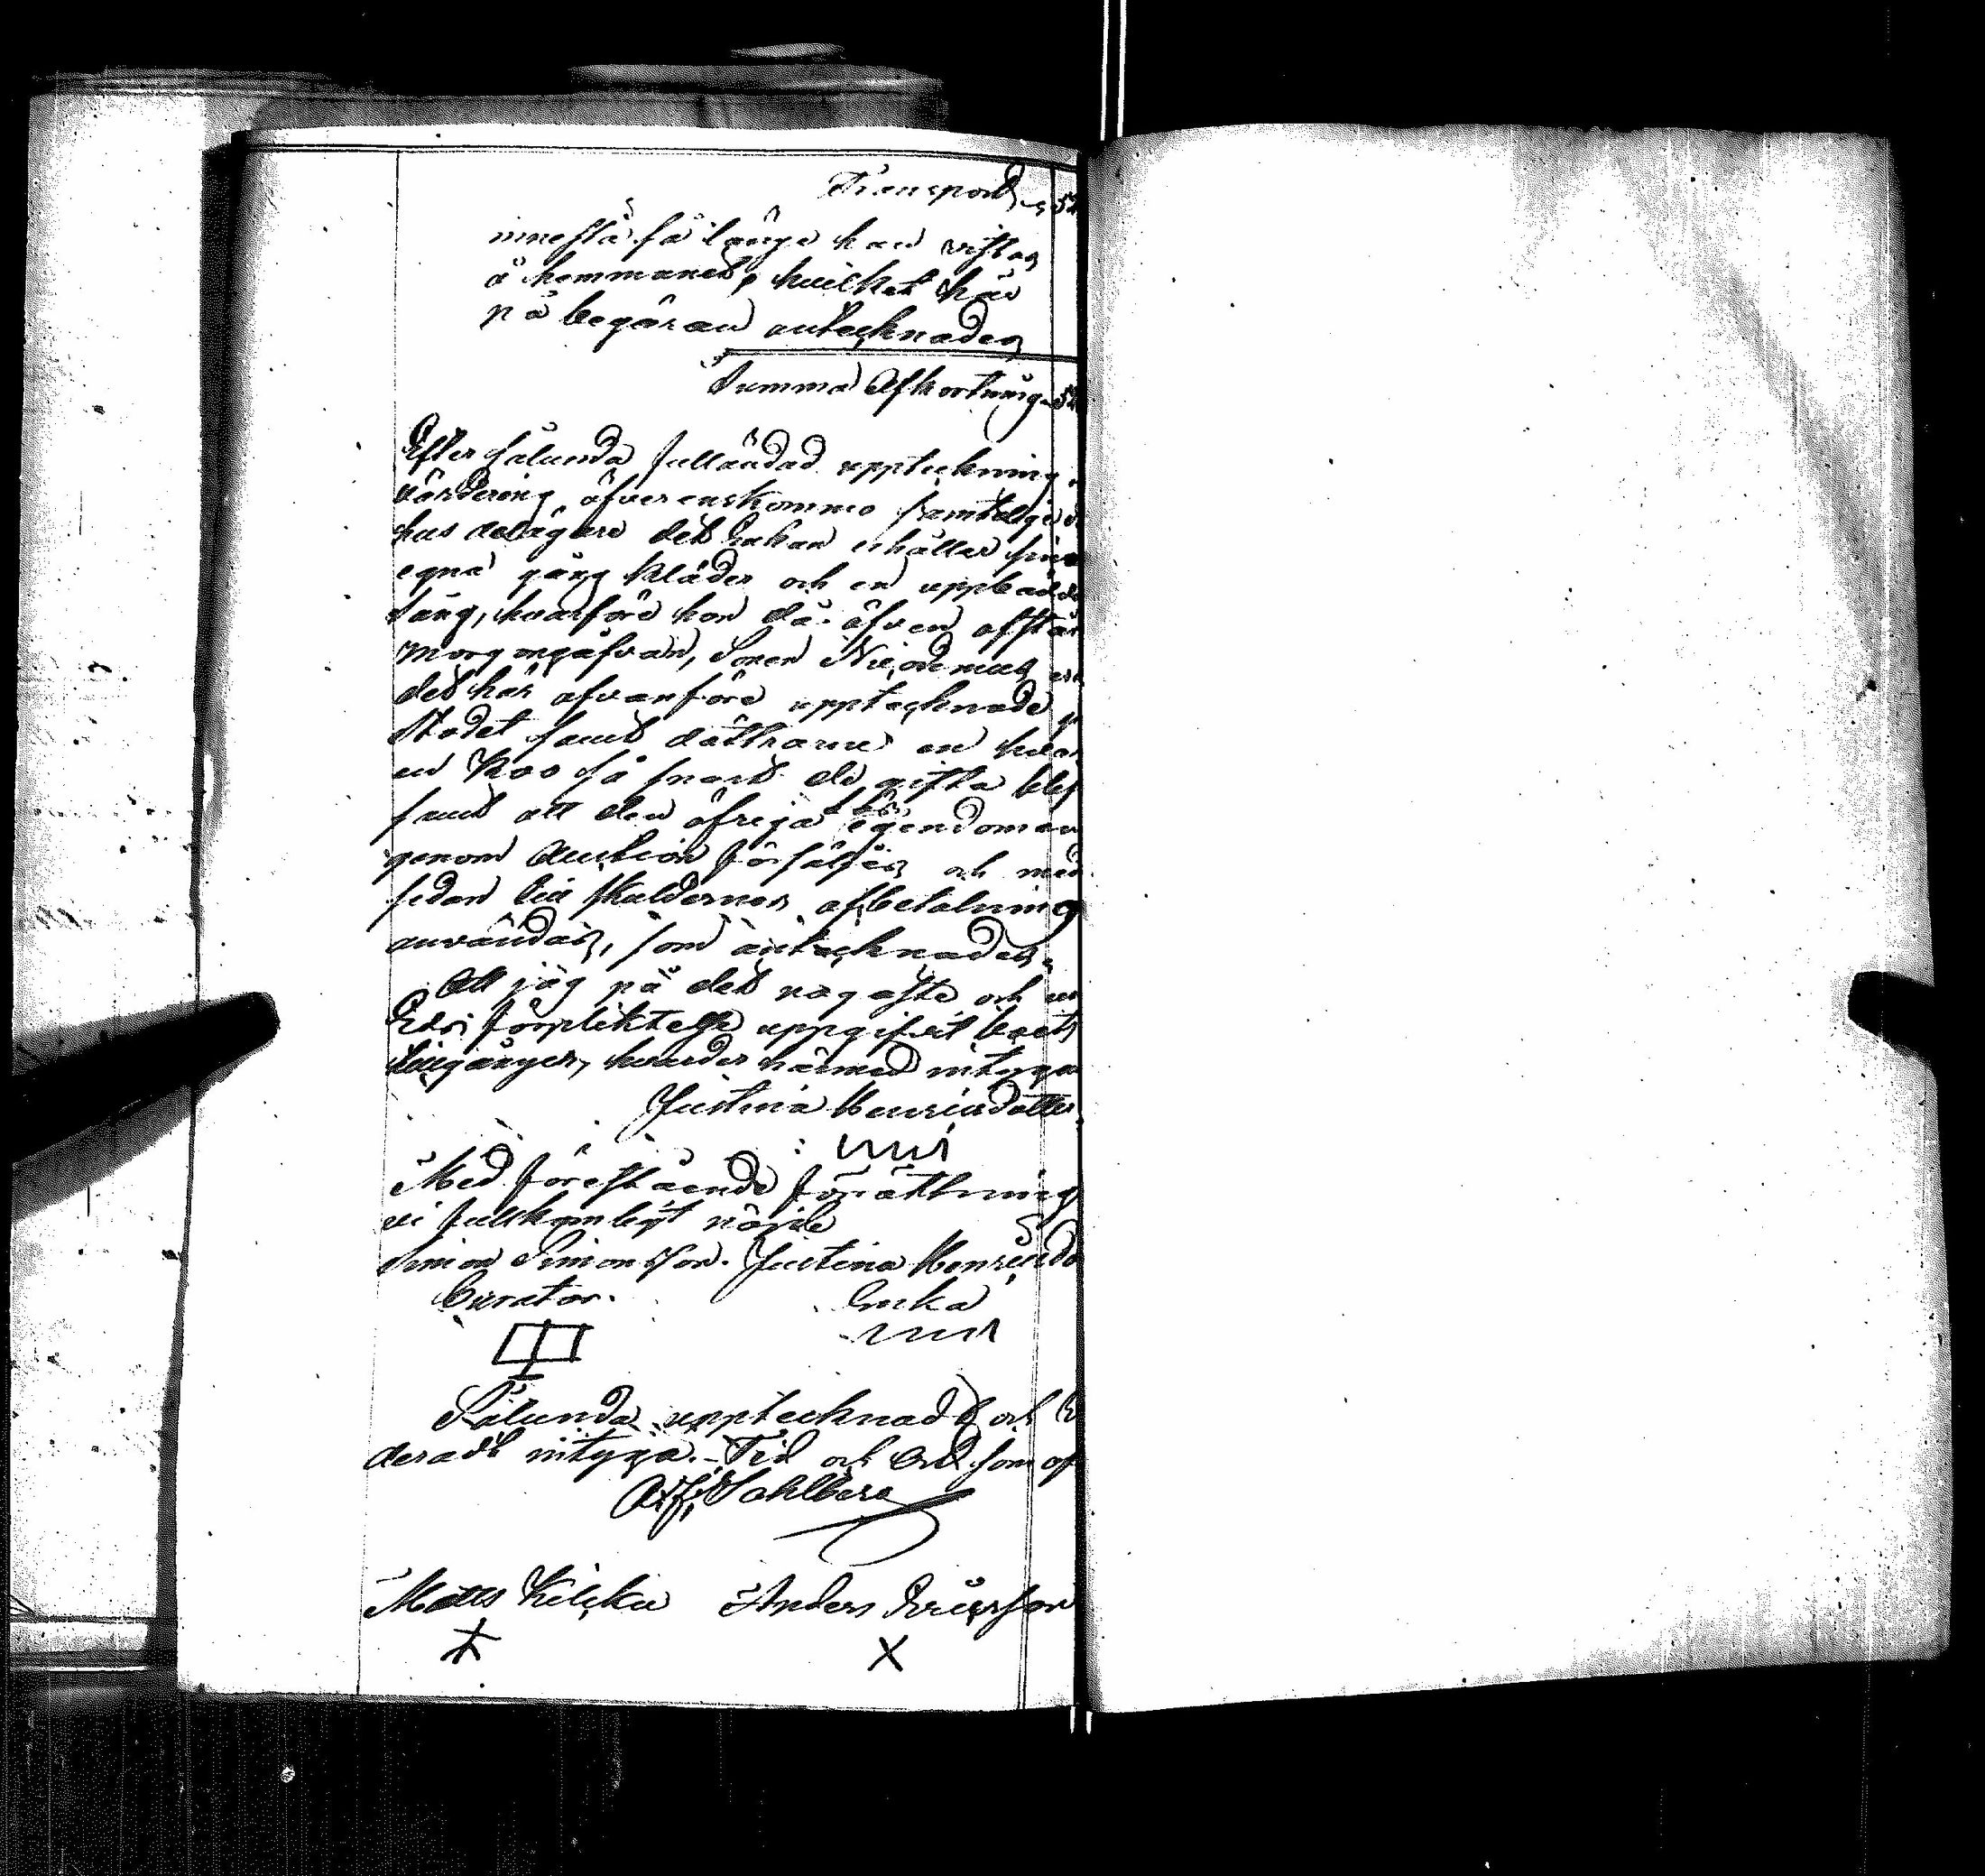 Transport 52
innestå så länge han vistas
å hemmanet, hvilket här
på begäran antecknades
Summa Afkortning 52
Efter sålunda fulländad uppteckning
värdering öfverenskommo samtelige
hus delägare det Enkan erhåller sine
egna gång kläder och en uppbädd
säng, hvarföre hon då äfven afstår
morgongåfvan, Sonen Nicodemus
det här ofvanföre upptecknade
Stodet samt döttrarne en hvar
en Koo så snart de gifta blef
samt att den öfriga egendomen
genom Auction försäljes och med
sedan till skuldernas afbetalning
användas, som antecknades.
Att jag på det nogaste och
Edsi förpliktelse uppgifvit boets
tillgångar, hvarder härmed intyga
Justina Henricsdotter
Med förestående förrättning
vi fullkomligt nöjde
Simon Simonsson. Justina Henricsdo
Curator. Enka
Sålunda upptecknadt och v
deradt intyga. Tid och Ord som of
Sahlberg
Matts Anders Ericsson